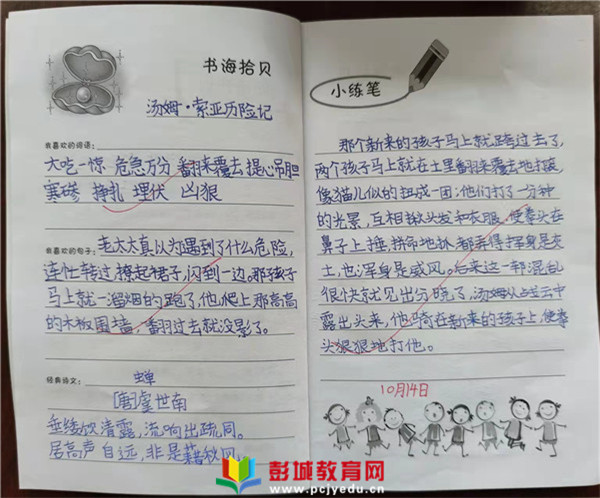 书海拾贝
汤姆·索亚历险记
我喜欢的词语:
大吃一惊 危急万分 翻来覆去 提心吊胆
寒碜 挣扎 埋伏 凶狠
我喜欢的句子: 老太太真以为遇到了什么危险,
连忙转过,撩起裙子,闪到一边。那孩子
马上就一溜烟的跑了,他爬上那高高
的木板围墙,翻过去就没影了。
经典诗文: 蝉
[唐]虞世南
垂緌饮清露,流响出疏同。
居高声自远,非是藉秋风。
小练笔
那个新来的孩子马上就跨过去了,
两个孩子马上就在土里翻来覆去地打滚,
像猫儿似的扭成一团;他们打了一分钟
的光景,互相揪头发和衣服,使拳头在
鼻子上捶,拼命地抓,都弄得浑身是灰
土,也浑身是威风。后来这一阵混乱
很快就见出分晓了,汤姆从战云中
露出头来,他骑在新来的孩子上,使拳
头狠狠地打他。
10月14日
彭城教育网
www.pcjyedu.cn